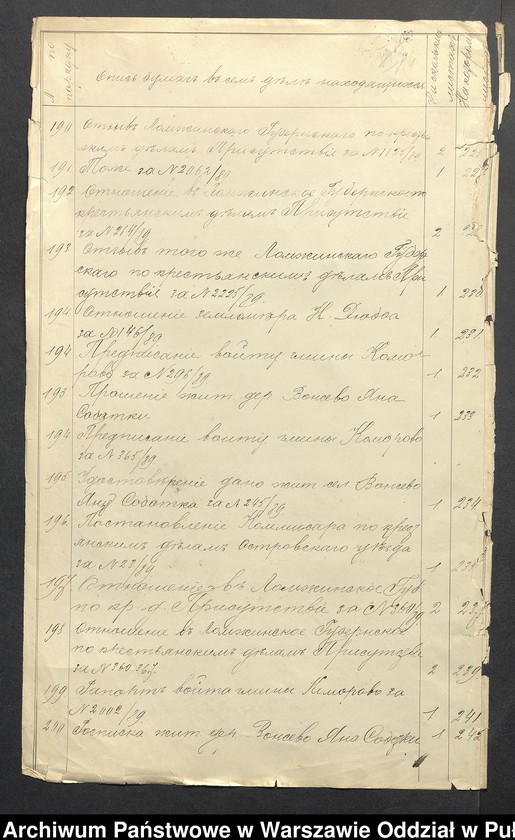 № по порядку
Опись бумагъ въ семъ дѣлѣ находящихся
На сколькихъ листахъ
190 Отзывъ Ломжинскаго Губернскаго по кресть
скимъ дѣламъ Присутствія за N 1125/89 2
191 Тоже за N 2062/89 1
192 Отношеніе въ Ломжинское Губернское по
крестьянскимъ дѣламъ Присутствіе
за N 214/89 2
193 Отзывъ того же Ломжинскаго Губерн
скаго по крестьянскимъ дѣламъ При
сутствія за N 2225/89. 1 230
194 Отношеніе землемѣра Н. Дюбоа
за N 146/89 1 231
194 Предписаніе войту гмины Комо-
рово за N 296/89 1 232
193 Прошеніе жит. дер Вонсево Яна
Соботки 1 233
194 Предписаніе войту гмины Коморово
за N 365/89
195 Удостовѣреніе дано жит. сел Вонсево
Яну Соботка за N 245/89 1 234
196 Постановленіе Коммисара по крест
янскимъ дѣламъ Островскаго уѣзда
за N 23/89 1 235
197 Отношеніе въ Ломжинское Губ
по кр. д. Присутствіе за N 360/89 2 237
198 Отношеніе въ Ломжинское Губернское
по крестьянскимъ дѣламъ Присутств
за N 360.367. 2 239
199 Рапортъ войта гмины Коморово за
N 2002/89 1 241
200 Росписка жит. дер. Вонсево Яна Соботки 1 242
Archiwum Państwowe w Warszawie Oddział w Puł